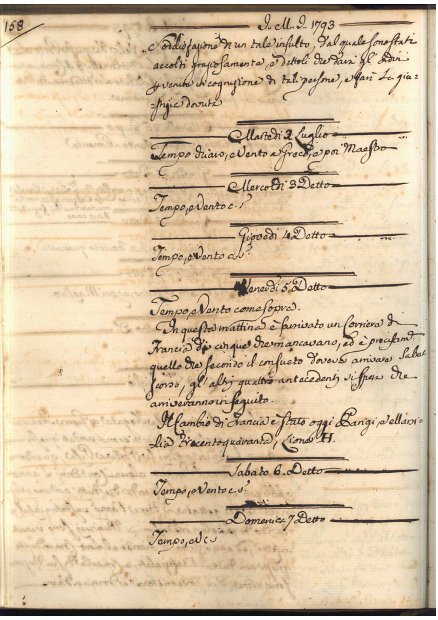 158
J. M. J. 1793
Soddisfazione di un tale insulto, dal quale sono stati
accolti graziosamente, e dettoli che darà gl'Ordini
venire in cognizione di tali persone, e farà le giu-
stizie dovute
Martedì 2 Luglio
Tempo chiaro, e Vento a Greco, e poi Maestro
Mercoldì 3 Detto
Tempo, e Vento c. s.ª
Giovedì 4 Detto
Tempo, e Vento c. s.ª
Venerdì 5 Detto
Tempo, e Vento come sopra.
In questa mattina è arrivato un Corriere di
Francia di cinque che mancavano, ed è precisam.
quello che secondo il consueto doveva arrivare Sabat
scorso, gl'altri quattro antecedenti si spera che
arriveranno in seguito.
Il Cambio di Francia è stato oggi Parigi, e Marsi-
lia Trecentoquaranta, Lione
Sabato 6. Detto
Tempo, e Vento c. s.ª
Domenica 7 Detto
Tempo, e V. c. s.ª